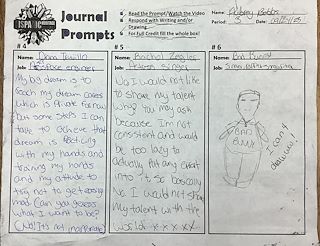 Journal
Prompts
Read the Prompt/Watch the Video
Respond with Writing and/or
Drawing
For Full Credit fill the whole box!
Name:
Period:
Date:
#4
#5
#6
Name:
Job:
My big dream is to
reach my dream career
which is Private for now
but some steps I can
take to achieve that
dream is
with my hands and
training my hands
and my attitude to
try not to get easily
mad. Can you guess
what I want to be?
Name: Rachel Zegler
Job:
No I would not like
to share my talent
why? You may ask
because I'm not
consistent and would
be too lazy to
actually put any effort
into it so basically
No. I would not share
My talent with the
world. x x x x x
Name: Bad Bunny
Job:
BAD
BUNNY
I can't
draw